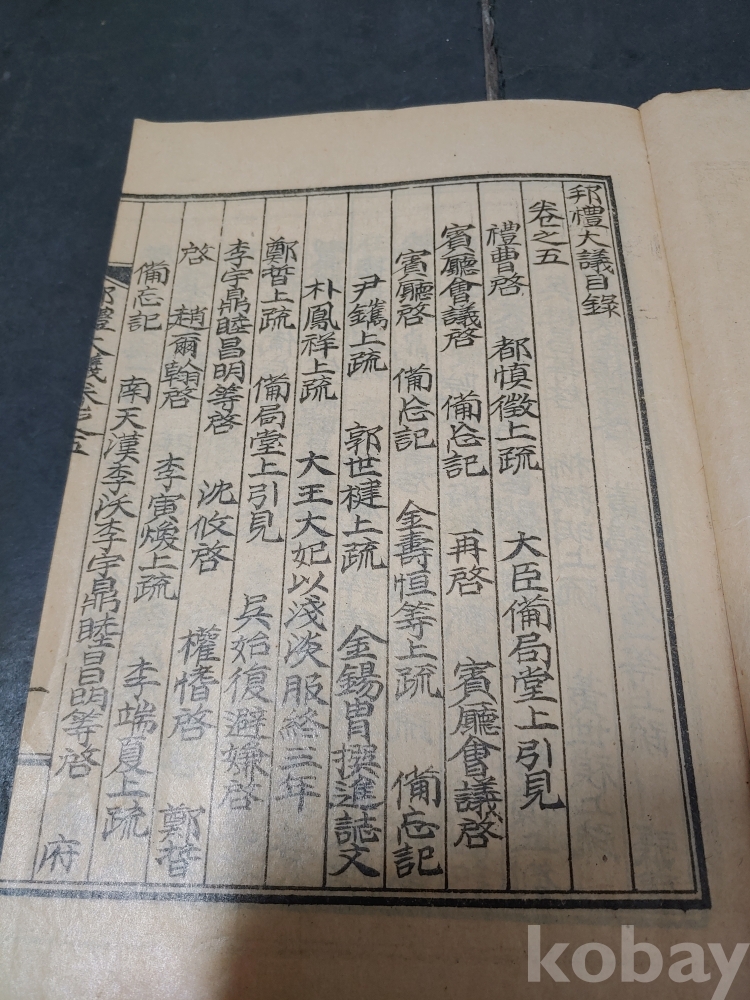 邦禮大議目錄
卷之五
禮曹啓 都愼徵上疏 大臣備局堂上引見
賓廳會議啓 備忘記 再啓 賓廳會議啓
賓廳啓 備忘記 金壽恒等上疏 備忘記
尹鑴上疏 郭世楗上疏 金錫胄撰進誌文
朴鳳祥上疏 大王大妃以淺淡服終三年
鄭晳上疏 備局堂上引見 吳始復避嫌啓
李宇鼎睦昌明等啓 沈攸啓 權愭啓 鄭晳
啓 趙爾翰啓 李寅煥上疏 李端夏上疏
備忘記 南天漢李沃李宇鼎睦昌明等啓 府
邦禮大議卷之五
kobay